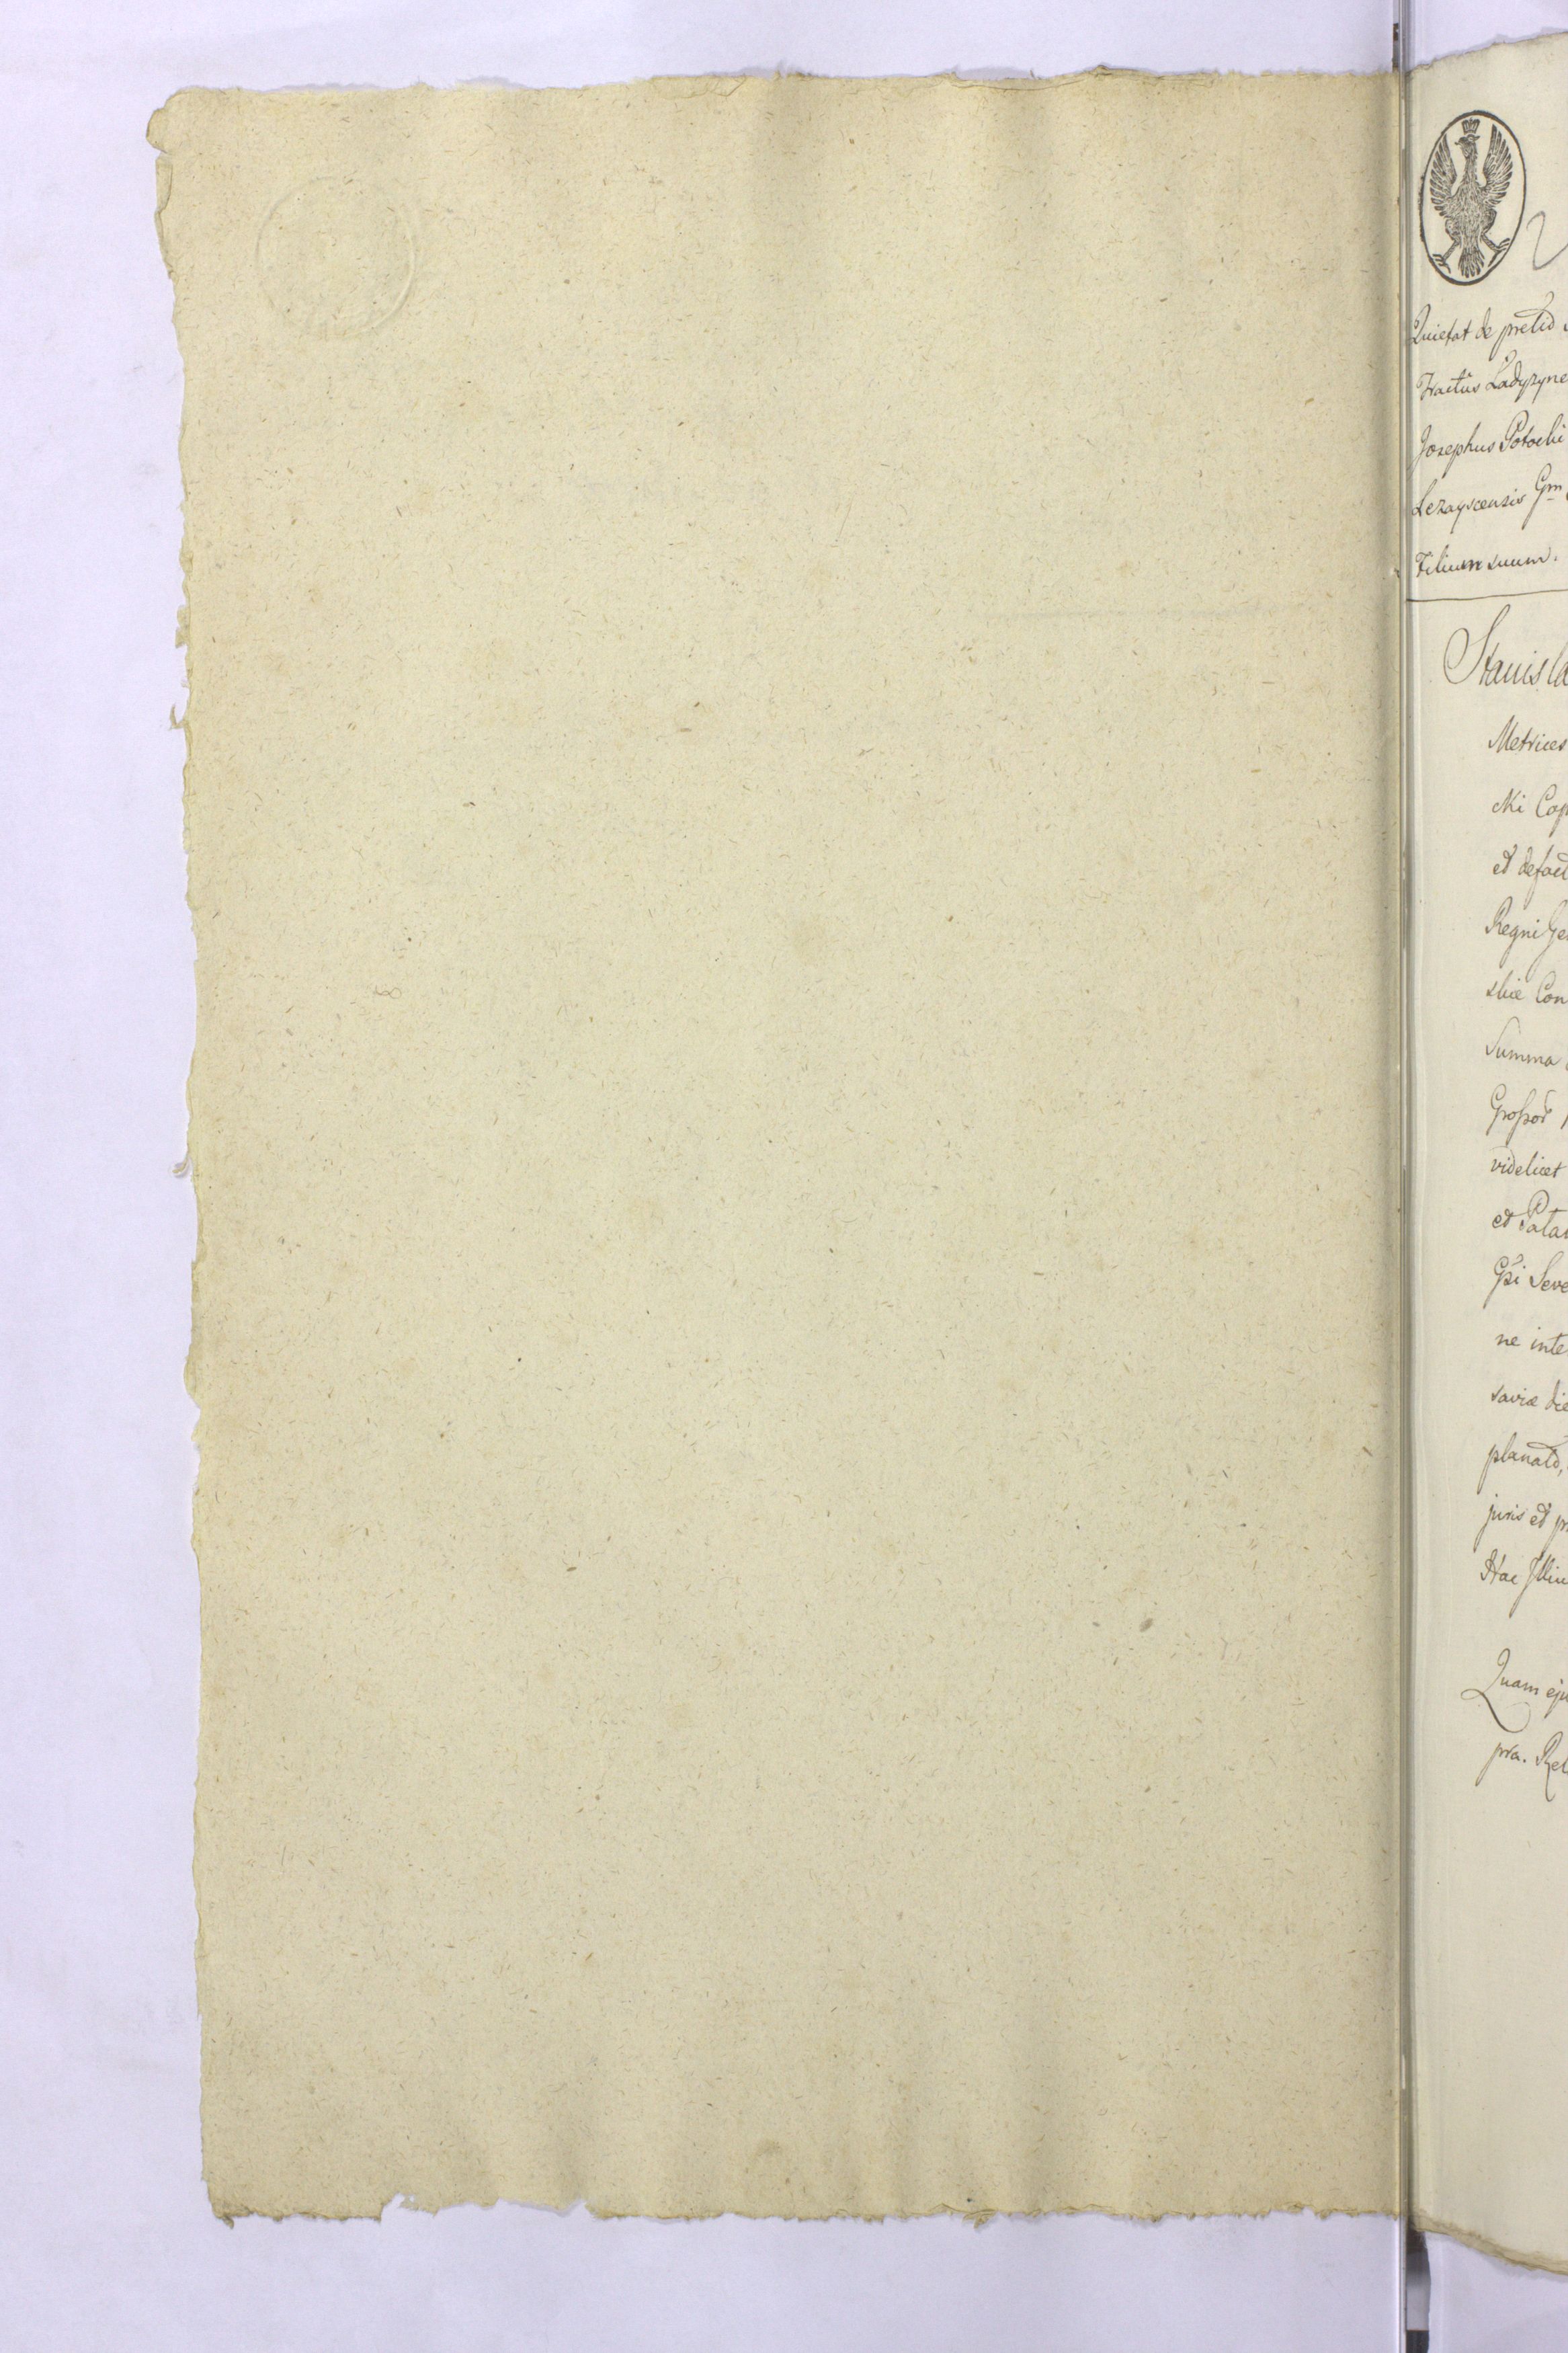 Quietat de pretio
Tractûs Ładyzyne
Josephus Potocki
Lezayscensis Gm
Filium suum.
Stanisla
Metrices
cki Cap
et defact
Regni Ge
skie Con
Summa
Großor
videlicet
et Palat
Gsi Seve
ne inte
saviæ die
planato,
juris et pr
Hac Illiu
Quam eju
pra. Rel